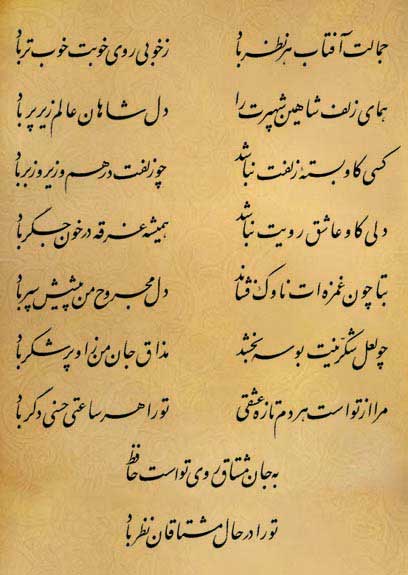 جمالت آفتاب هر نظر باد ز خوبی روی خوبت خوب تر باد
همای زلف شاهین شهپرت را دل شاهان عالم زیر پر باد
کسی کاو بستهٔ زلفت نباشد چو زلفت درهم و زیر و زبر باد
دلی کاو عاشق رویت نباشد همیشه غرقه در خون جگر باد
بتا چون غمزه ات ناوک فشاند دل مجروح من پیشش سپر باد
چو لعل شکّرینت بوسه بخشد مذاق جان من ز او پر شکر باد
مرا از تو است هر دم تازه عشقی تو را هر ساعتی حسنی دگر باد
به جان مشتاق روی تو است حافظ
تو را در حال مشتاقان نظر باد